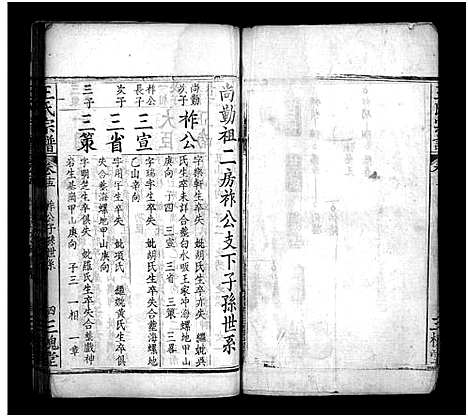 尚勤祖二房祚公支下子孫世系
尚勤
次子
祚公
字樂軒生卒亦失 娓胡氏生卒失 繼娓吳
氏生卒未詳合塟白水畈王家冲海螺地甲山
庚向 子四 三宣 三省 三策 三畧
祚公
長子
三宣
字瑞宇生卒失 娓胡氏生卒失合塟海螺地
乙山辛向
二子
三省
字用宇生卒失 娓項氏 繼娓黄氏生卒俱
失合塟海螺地甲山庚向
三子
三策
字明芝生卒俱失 娓羅氏生卒失合塟戲神
岩生基崗甲山庚向 子三 一相 一章
王氏宗譜
卷五 祚公子孫世系
四
三槐堂